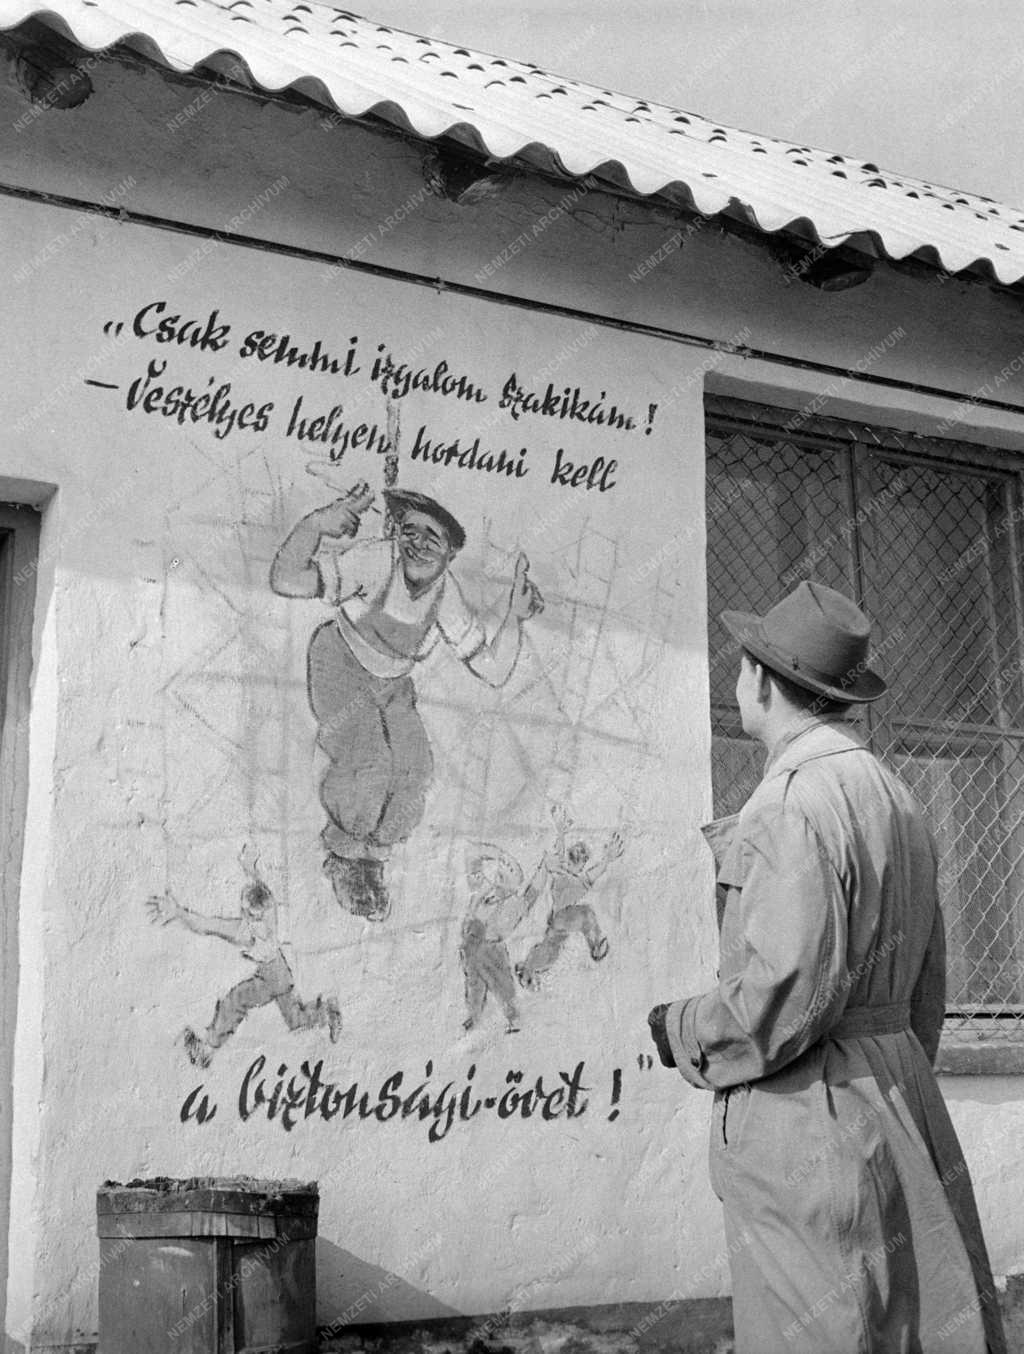 „Csak semmi izgalom szakikám!
– Veszélyes helyen hordani kell
a biztonsági-övet!"
NEMZETI ARCHIVUM